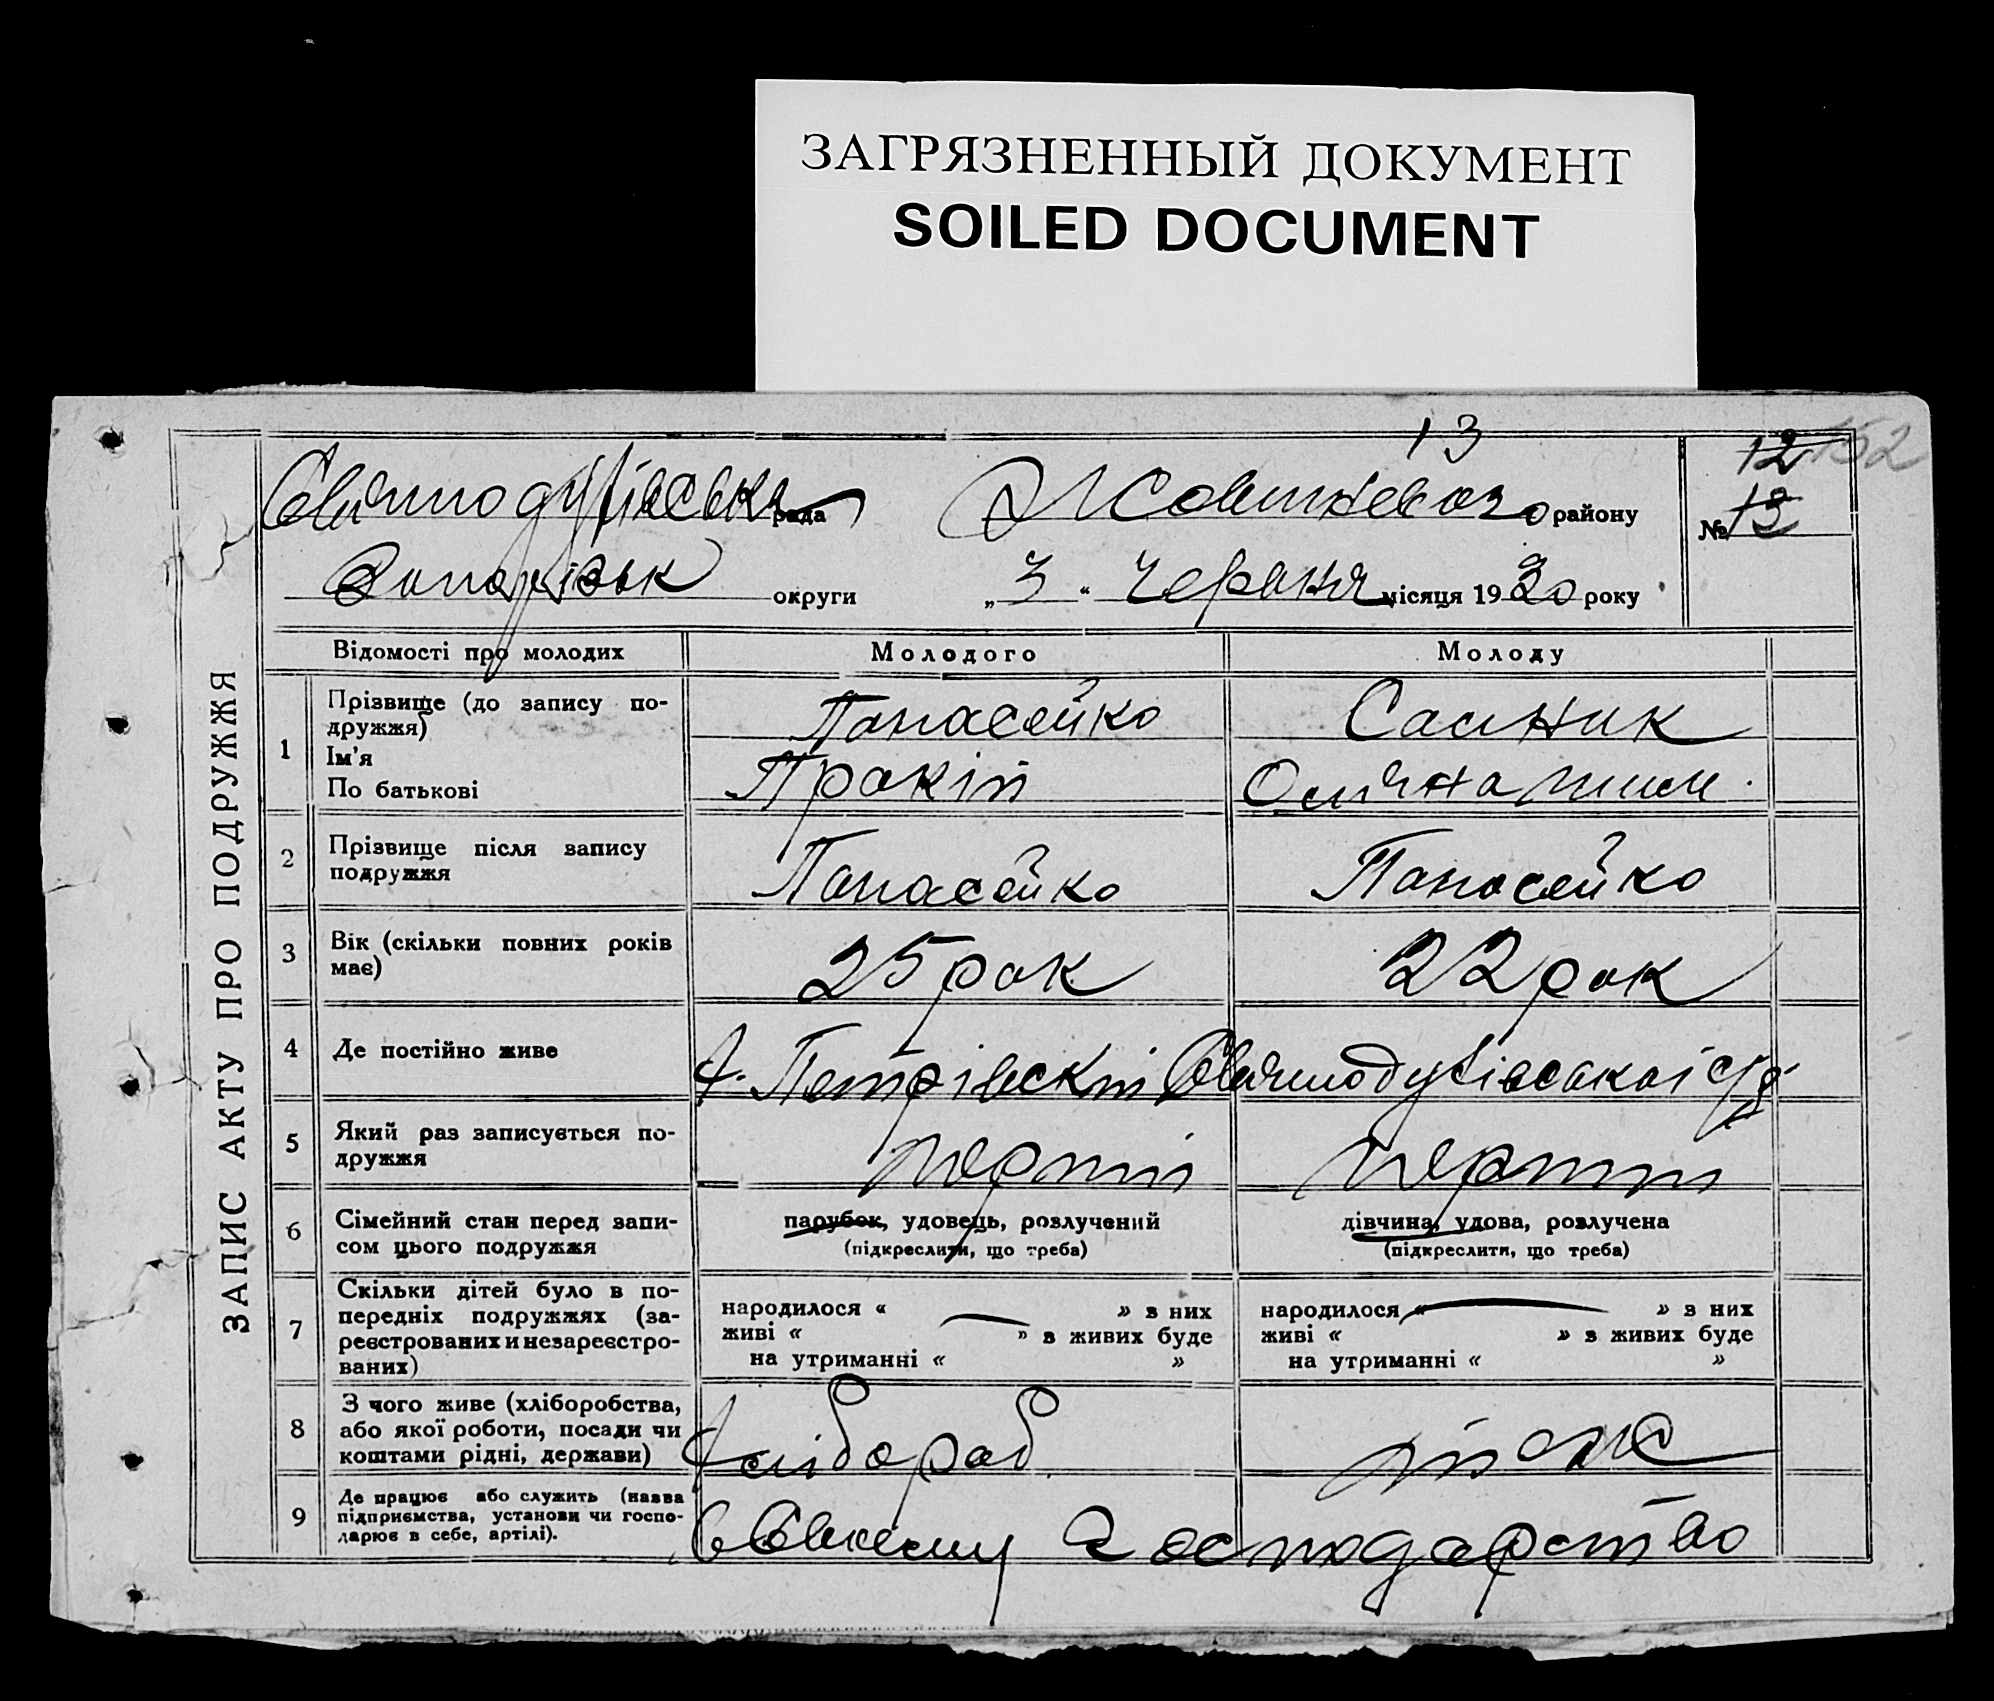 ЗАГРЯЗНЕННЫЙ ДОКУМЕНТ
SOILED DOCUMENT
13
152
Святодухівська рада району
12
№ 13
Запорізьк округи „3“ Червня місяця 1930 року
ЗАПИС АКТУ ПРО ПОДРУЖЖЯ
Відомості про молодих Молодого Молоду
1 Прізвище (до запису по-
дружжя)
Ім'я
По батькові
Панасейко
Прокіп
2 Прізвище після запису
подружжя
Панасейко Панасейко
3 Вік (скільки повних років
має)
25 рок 22 рок
4 Де постійно живе
х. Петрівскій Святодухівської с/р
5 Який раз записується по-
дружжя
перший перший
6 Сімейний стан перед запи-
сом цього подружжя
парубок, удовець, розлучений
(підкреслити, що треба)
дівчина, удова, розлучена
(підкреслити, що треба)
7 Скільки дітей було в по-
передніх подружжях (за-
реєстрованих и незареєстро-
ваних)
народилося « » з них
живі « » з живих буде
на утриманні « »
народилося « » з них
живі « » з живих буде
на утриманні « »
8 З чого живе (хліборобства,
або якої роботи, посади чи
коштами рідні, держави)
Хлібороб тоже
9 Де працює або служить (назва
підприємства, установи чи госпо-
дарює в себе, артілі).
господарство